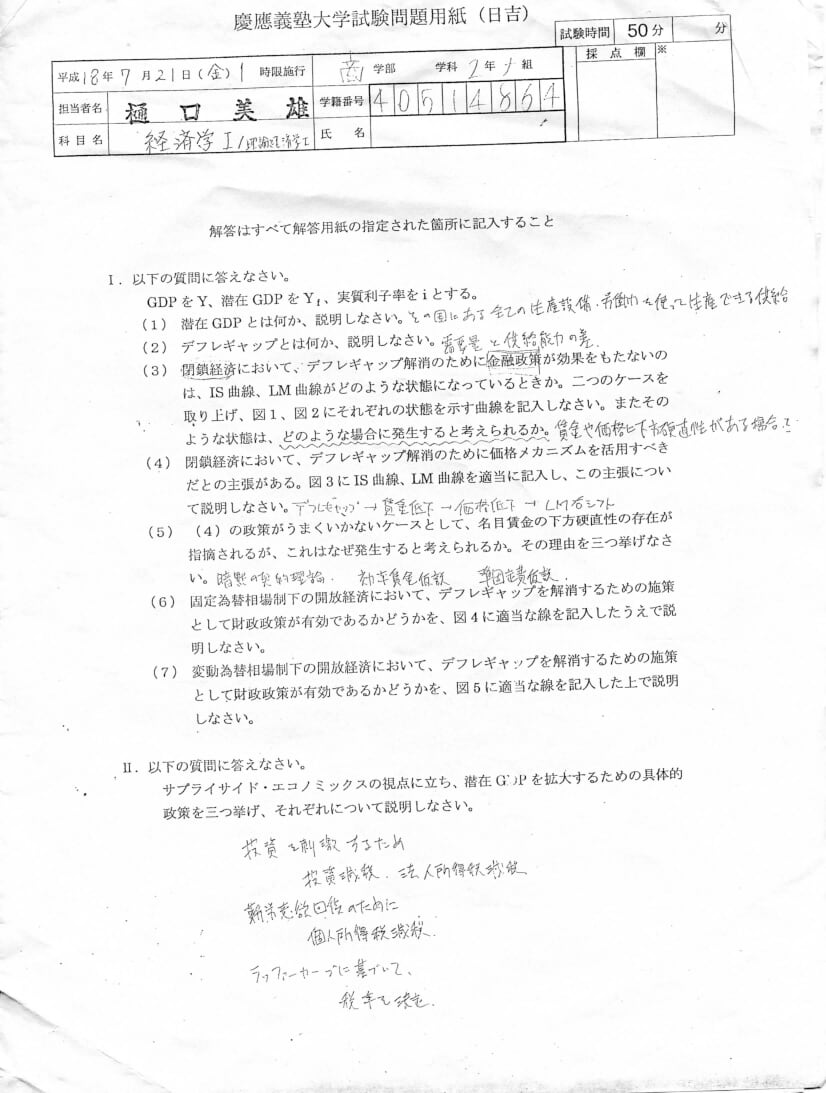 慶應義塾大学試験問題用紙（日吉）
試験時間 50分 分
平成18年7月21日(金)1時限施行 商学部 学科2年 組
採点欄 ※
担当者名 樋口美雄 学籍番号 40514864
科目名 経済学I/理論経済学I 氏名
解答はすべて解答用紙の指定された箇所に記入すること
I．以下の質問に答えなさい。
GDPをY、潜在GDPをYf、実質利子率をiとする。
（1）潜在GDPとは何か、説明しなさい。その国にある全ての生産設備・労働力を使って生産できる供給
（2）デフレギャップとは何か、説明しなさい。需要量と供給能力の差.
（3）閉鎖経済において、デフレギャップ解消のために金融政策が効果をもたないの
は、IS曲線、LM曲線がどのような状態になっているときか。二つのケースを
取り上げ、図1、図2にそれぞれの状態を示す曲線を記入しなさい。またその
ような状態は、どのような場合に発生すると考えられるか。賃金や価格に下方硬直性がある場合
（4）閉鎖経済において、デフレギャップ解消のために価格メカニズムを活用すべき
だとの主張がある。図3にIS曲線、LM曲線を適当に記入し、この主張につい
て説明しなさい。デフレギャップ→賃金低下→価格低下→LM右シフト
（5）（4）の政策がうまくいかないケースとして、名目賃金の下方硬直性の存在が
指摘されるが、これはなぜ発生すると考えられるか。その理由を三つ挙げなさ
い。暗黙の契約理論. 効率賃金仮説 準固定費仮説.
（6）固定為替相場制下の開放経済において、デフレギャップを解消するための施策
として財政政策が有効であるかどうかを、図4に適当な線を記入したうえで説
明しなさい。
（7）変動為替相場制下の開放経済において、デフレギャップを解消するための施策
として財政政策が有効であるかどうかを、図5に適当な線を記入した上で説明
しなさい。
II．以下の質問に答えなさい。
サプライサイド・エコノミックスの視点に立ち、潜在GDPを拡大するための具体的
政策を三つ挙げ、それぞれについて説明しなさい。
投資を刺激するため
投資減税. 法人所得税減税
勤労意欲回復のために
個人所得税減税.
ラッファーカーブに基づいて、
税率を決定.